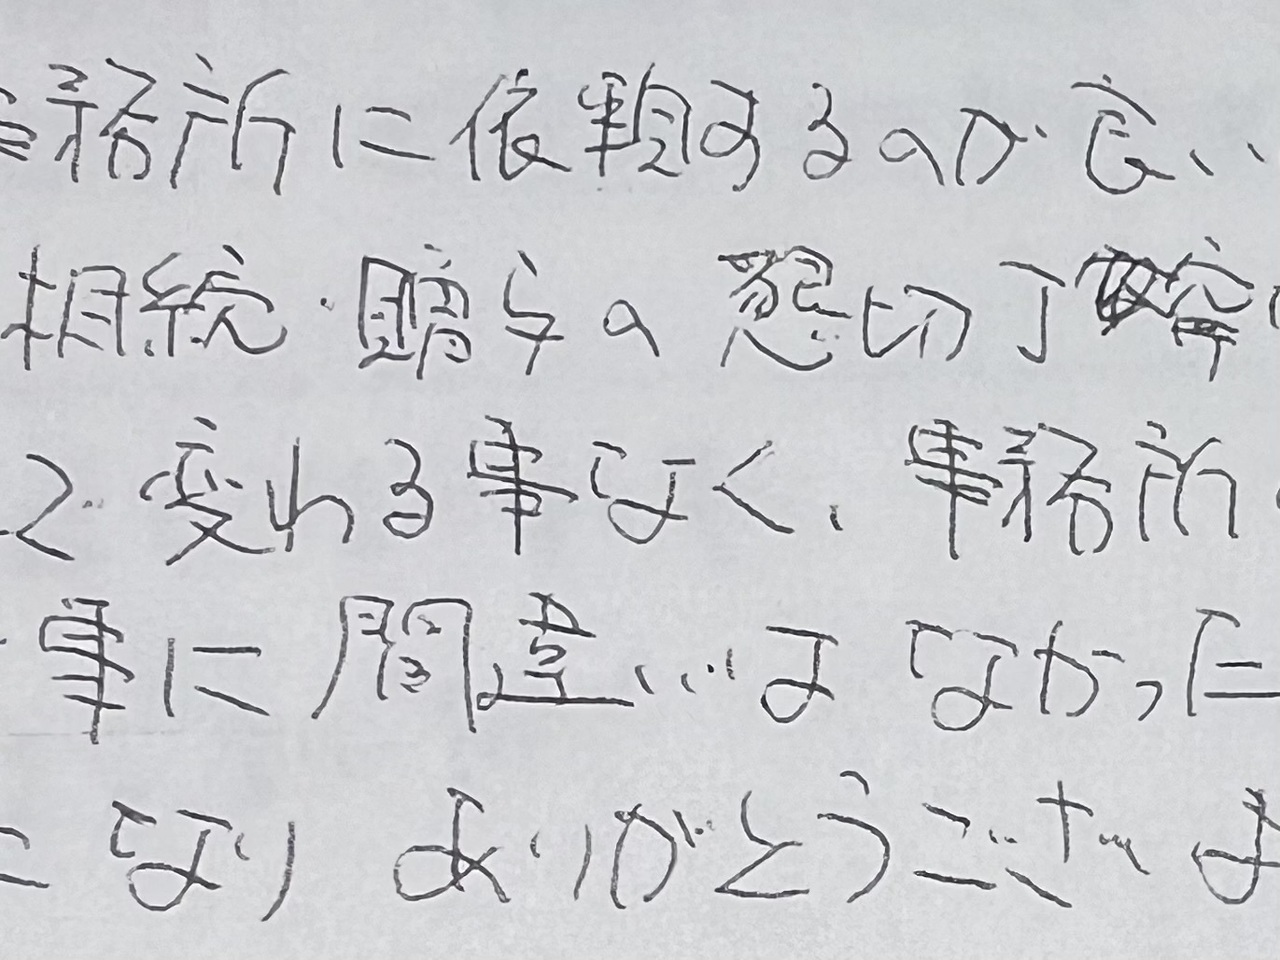 事務所に依頼するのが良い
相続・贈与の懇切丁寧
て変わる事なく、事務所
事に間違いはなかった
になり ありがとうございま